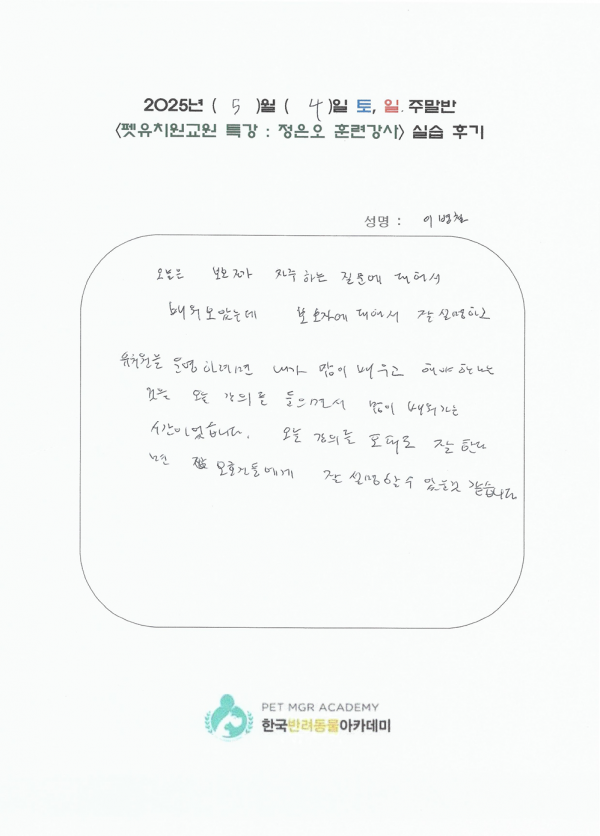 2025년 ( 5 )월 ( 4 )일 토, 일. 주말반
<펫유치원교원 특강 : 정은오 훈련강사> 실습 후기
성명 : 이병철
오늘은 보호자가 자주 하는 질문에 대해서
배워보았는데 보호자에 대해서 잘 설명하고
유치원을 운영하려면 내가 많이 배우고 해야 한다는
것을 오늘 강의를 들으면서 많이 배워가는
시간이었습니다. 오늘 강의를 토대로 잘 한다
면 보호자들에게 잘 설명할 수 있을것 같습니다
PET MGR ACADEMY
한국반려동물아카데미